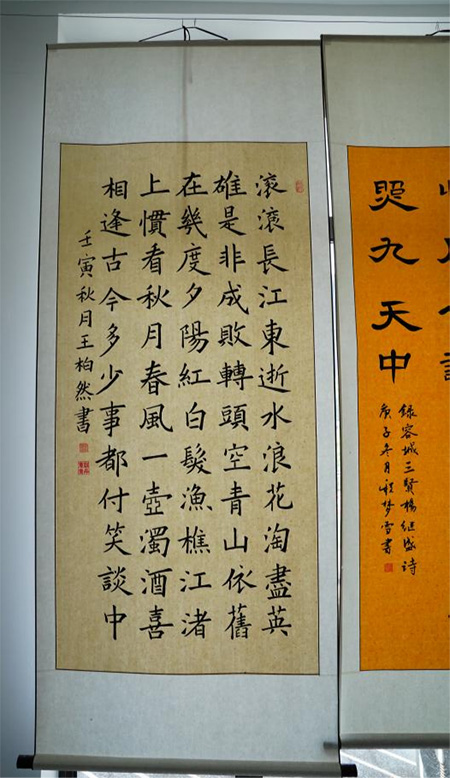 滚滚長江東逝水浪花淘盡英
雄是非成敗轉頭空青山依舊
在幾度夕陽紅白髮漁樵江渚
上慣看秋月春風一壺濁酒喜
相逢古今多少事都付笑談中
壬寅秋月王柏然書
照九天中
錄容城三賢楊继盛诗
庚子冬月程梦雪書